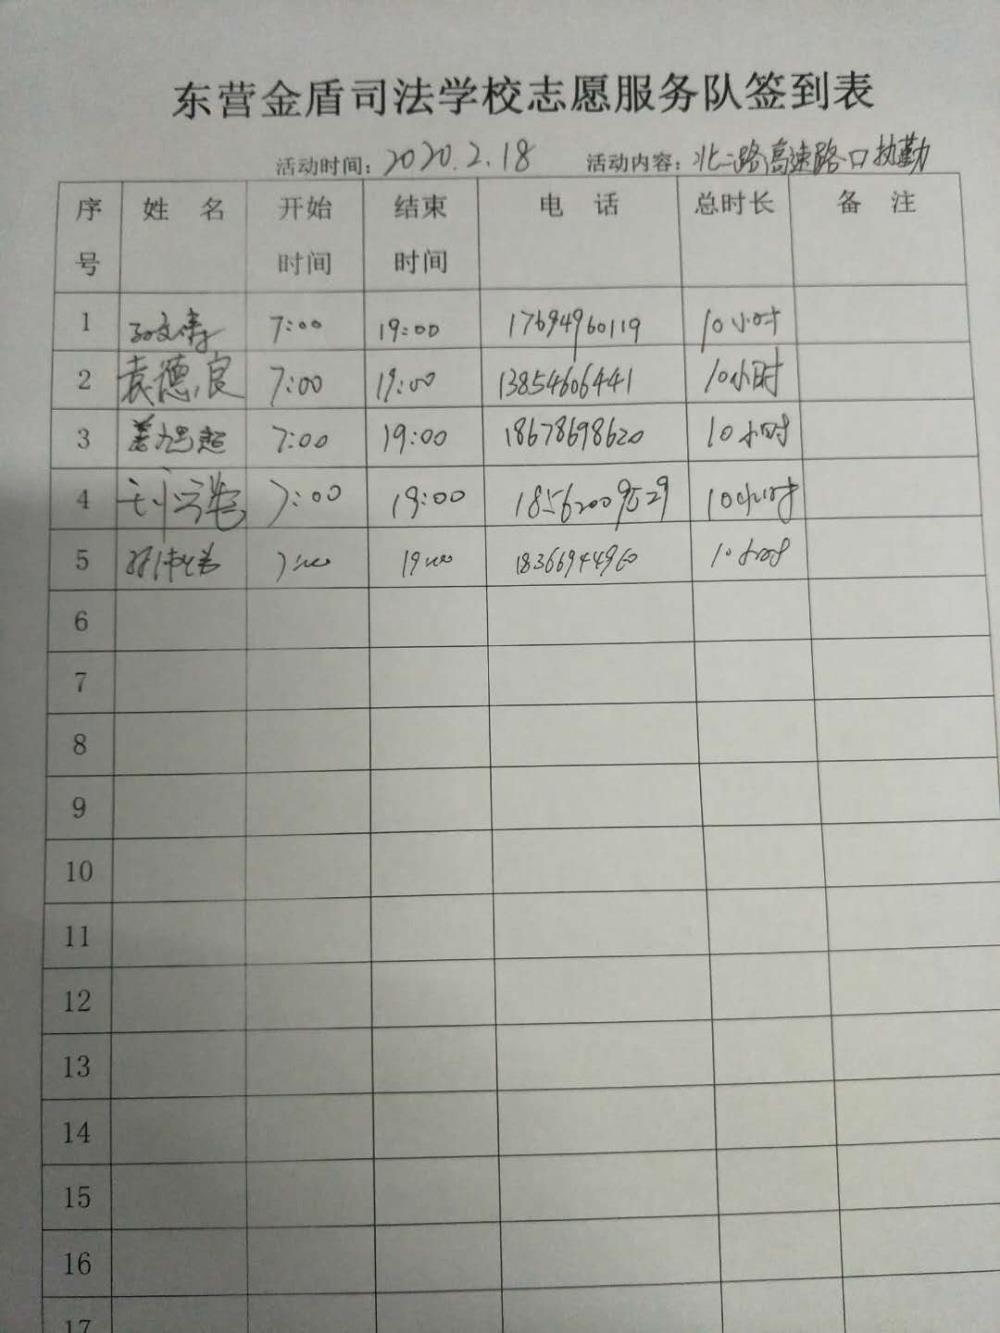 东营金盾司法学校志愿服务队签到表
活动时间：2020.2.18 活动内容：北二路高速路口执勤
序号 姓 名 开始时间 结束时间 电 话 总时长 备 注
1 7:00 19:00 17694960119 10小时
2 袁德良 7:00 19:00 13854606441 10小时
3 7:00 19:00 18678698620 10小时
4 7:00 19:00 18562009529 10小时
5 7:00 19:00 18366944960 10小时
6
7
8
9
10
11
12
13
14
15
16
17